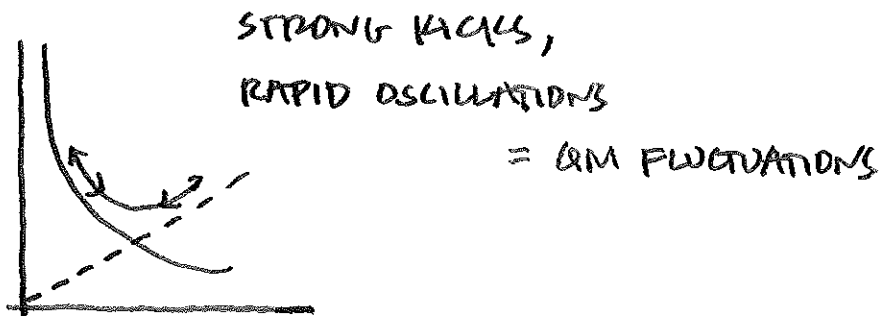 STRONG KICKS,
RAPID OSCILLATIONS
= QM FLUCTUATIONS